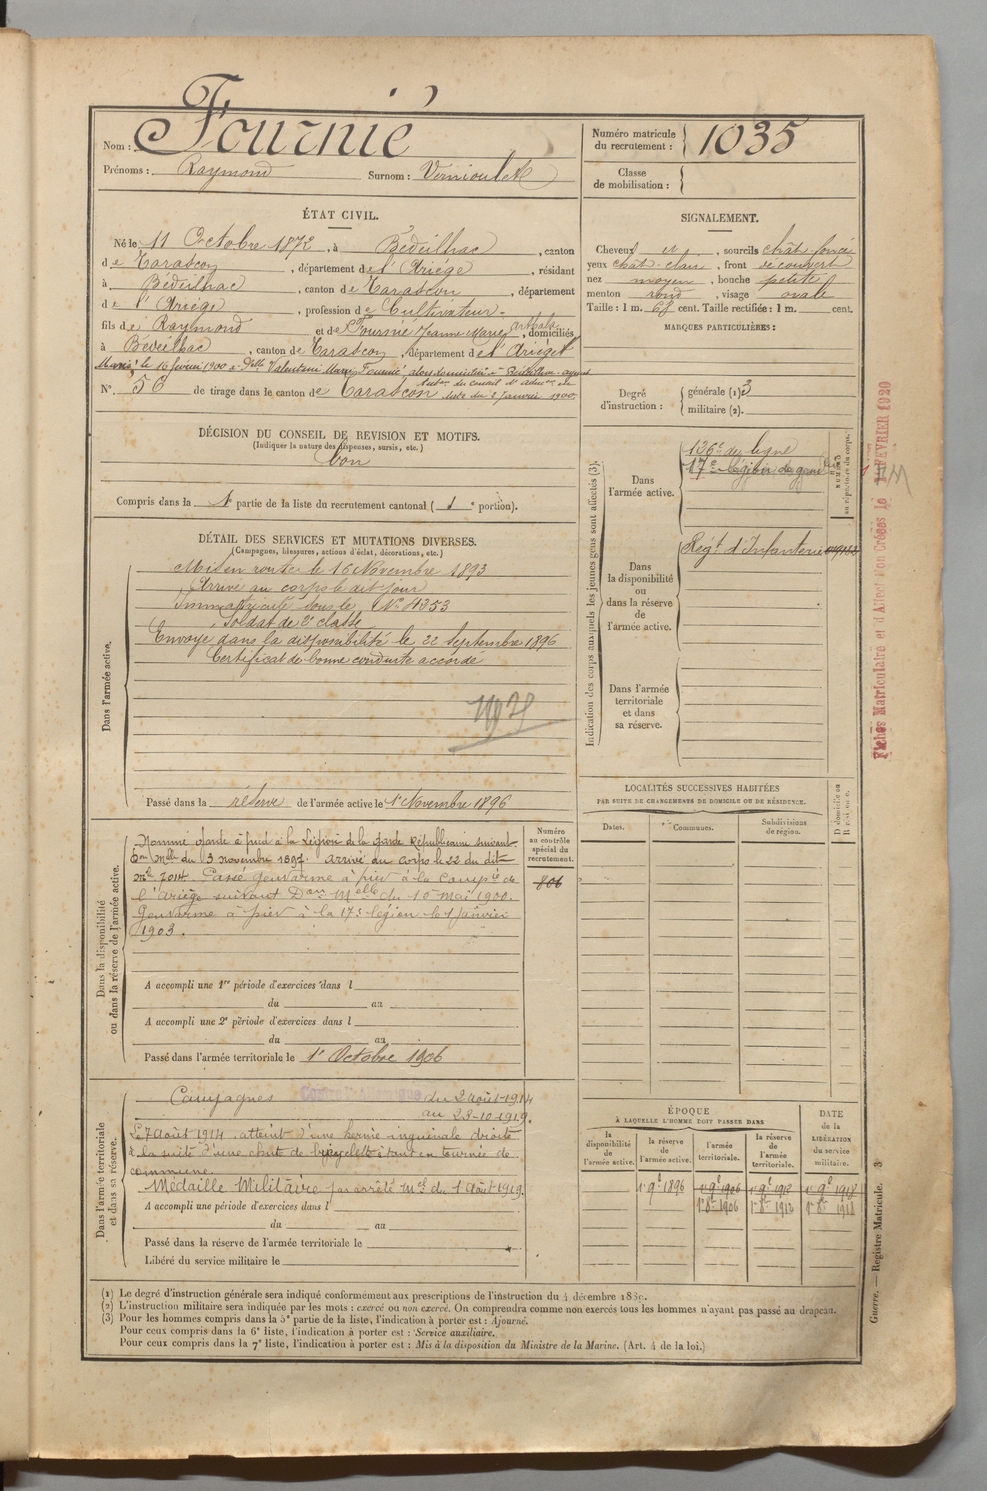 Nom : Fournié
Prénoms : Raymond Surnom : Vernioulet
Numéro matricule du recrutement : 1035
Classe de mobilisation :
ÉTAT CIVIL.
Né le 11 Octobre 1872, à Bédeilhac, canton
de Tarascon, département de l'Ariège, résidant
à Bédeilhac, canton de Tarascon, département
de l'Ariège, profession de Cultivateur
fils de Raymond et de Fournié Jeanne Marie, domiciliés
à Bédeilhac, canton de Tarascon, département de l'Ariège
Marié le 10 février 1900 à Dlle Valentine Marie Fournié, alors domiciliée à Bédeilhac
N° 56 de tirage dans le canton de Tarascon
du conseil d'admon en date du 2 janvier 1900
SIGNALEMENT.
Cheveux et, sourcils chât. foncé
yeux chât. clair, front découvert
nez moyen, bouche petite
menton rond, visage ovale
Taille : 1 m. 68 cent. Taille rectifiée : 1 m. cent.
MARQUES PARTICULIÈRES :
Degré d'instruction : générale (1) 3
militaire (2).
DÉCISION DU CONSEIL DE REVISION ET MOTIFS.
(Indiquer la nature des dispenses, sursis, etc.)
bon
Compris dans la 1e partie de la liste du recrutement cantonal ( 1e portion).
DÉTAIL DES SERVICES ET MUTATIONS DIVERSES.
(Campagnes, blessures, actions d'éclat, décorations, etc.)
Dans l'armée active.
Mis en route le 16 Novembre 1893
Arrivé au corps le dit jour
Immatriculé sous le N° 4353
Soldat de 2e classe
Envoyé dans la disponibilité le 22 Septembre 1896
Certificat de bonne conduite accordé
Passé dans la réserve de l'armée active le 1er Novembre 1896
Indication des corps auxquels les jeunes gens sont affectés (3).
Dans l'armée active.
136e de ligne
17e Légion de gendie
NUMÉRO au répertoire du corps.
Dans la disponibilité ou dans la réserve de l'armée active.
Régt d'Infanterie
Dans l'armée territoriale et dans sa réserve.
Fiches Matriculaire et d'Affectation Créées le FEVRIER 1920
LOCALITÉS SUCCESSIVES HABITÉES
PAR SUITE DE CHANGEMENTS DE DOMICILE OU DE RÉSIDENCE.
Dates. Communes. Subdivisions de région. D domicile ou R résidence.
Dans la disponibilité ou dans la réserve de l'armée active.
Numéro au contrôle spécial du recrutement.
806
Nommé garde à pied à la Légion de la garde Républicaine suivant
Don Melle du 3 novembre 1897. Arrivé au corps le 22 du dit
Passé Gendarme à pied à la Compie de
l'Ariège suivant Don Melle du 10 mai 1900.
Gendarme à pied à la 17e légion le 1 janvier
1903.
A accompli une 1re période d'exercices dans l
du au
A accompli une 2e période d'exercices dans l
du au
Passé dans l'armée territoriale le 1er Octobre 1906
Dans l'armée territoriale et dans sa réserve.
Campagnes Contre l'Allemagne du 2 août 1914
au 28-10-1919.
Le 7 août 1914, atteint d'une hernie inguinale droite
à la suite d'une chute de bicyclette étant en tournée de
commune.
Médaille Militaire par arrêté Mel du 1 Août 1919.
A accompli une période d'exercices dans l
du au
Passé dans la réserve de l'armée territoriale le
Libéré du service militaire le
ÉPOQUE
À LAQUELLE L'HOMME DOIT PASSER DANS
la disponibilité de l'armée active.
la réserve de l'armée active.
l'armée territoriale.
la réserve de l'armée territoriale.
DATE de la LIBÉRATION du service militaire.
1er 9e 1896 1er 9e 1906 1er 9e 1912 1er 9e 1918
1er 8e 1906 1er 8e 1912 1er 8e 1918
(1) Le degré d'instruction générale sera indiqué conformément aux prescriptions de l'instruction du 4 décembre 1889.
(2) L'instruction militaire sera indiquée par les mots : exercé ou non exercé. On comprendra comme non exercés tous les hommes n'ayant pas passé au drapeau.
(3) Pour les hommes compris dans la 5e partie de la liste, l'indication à porter est : Ajourné.
Pour ceux compris dans la 6e liste, l'indication à porter est : Service auxiliaire.
Pour ceux compris dans la 7e liste, l'indication à porter est : Mis à la disposition du Ministre de la Marine. (Art. 4 de la loi.)
Guerre. — Registre Matricule. 3